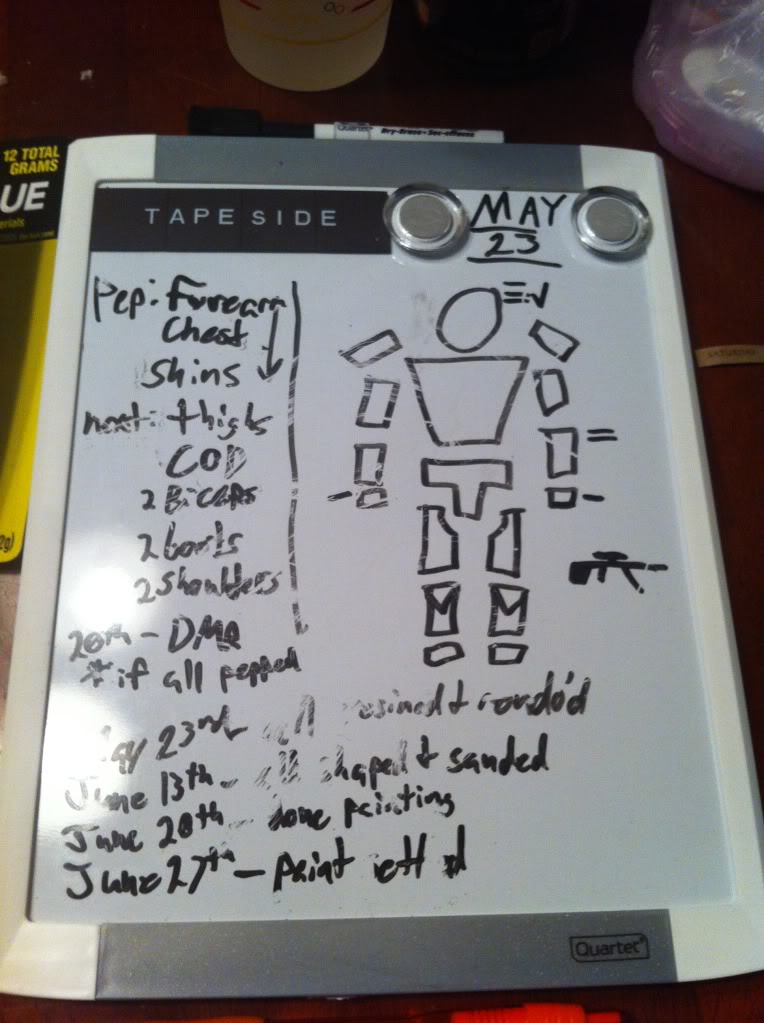 Quartet Dry-Erase
12 TOTAL
GRAMS
UE
TAPE SIDE
MAY
23
Pep: Forearm
Chest
Shins
next: thighs
COD
2 Biceps
2 boots
2 shoulders
20th - DMR
* if all pepped
May 23rd - all resined + rondo'd
June 13th - all shaped + sanded
June 20th - done painting
June 27th - paint
SATURDAY
Quartet